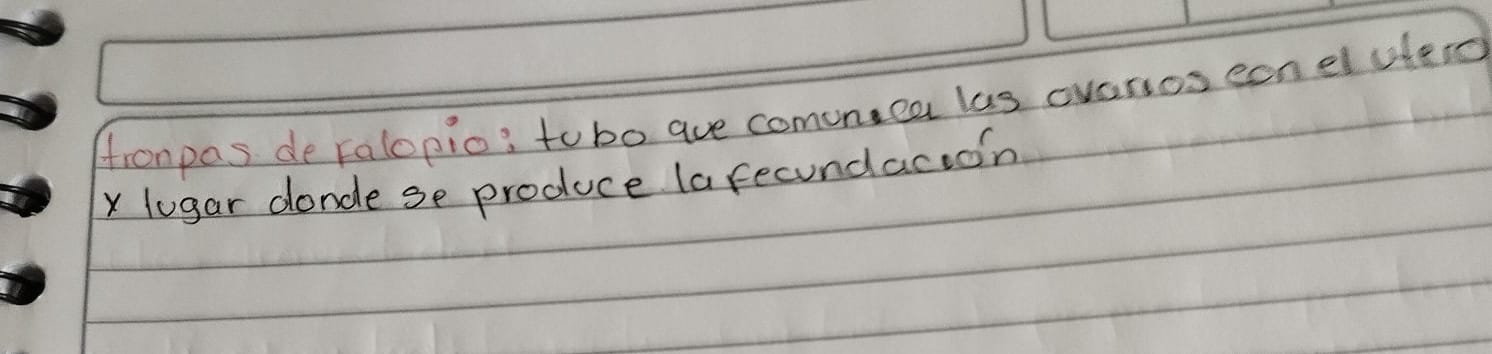 tronpas de falopio: tubo que comunica las ovarios con el utero
y lugar donde se produce la fecundación